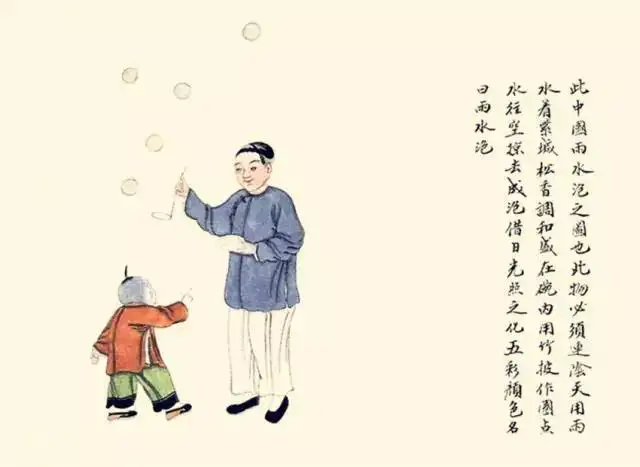 此中國雨水泡之圖也此物必須連陰天用雨
水着紫堿松香調和盛在碗内用竹披作圈点
水往空撩去成泡借日光照之化五彩顔色名
曰雨水泡